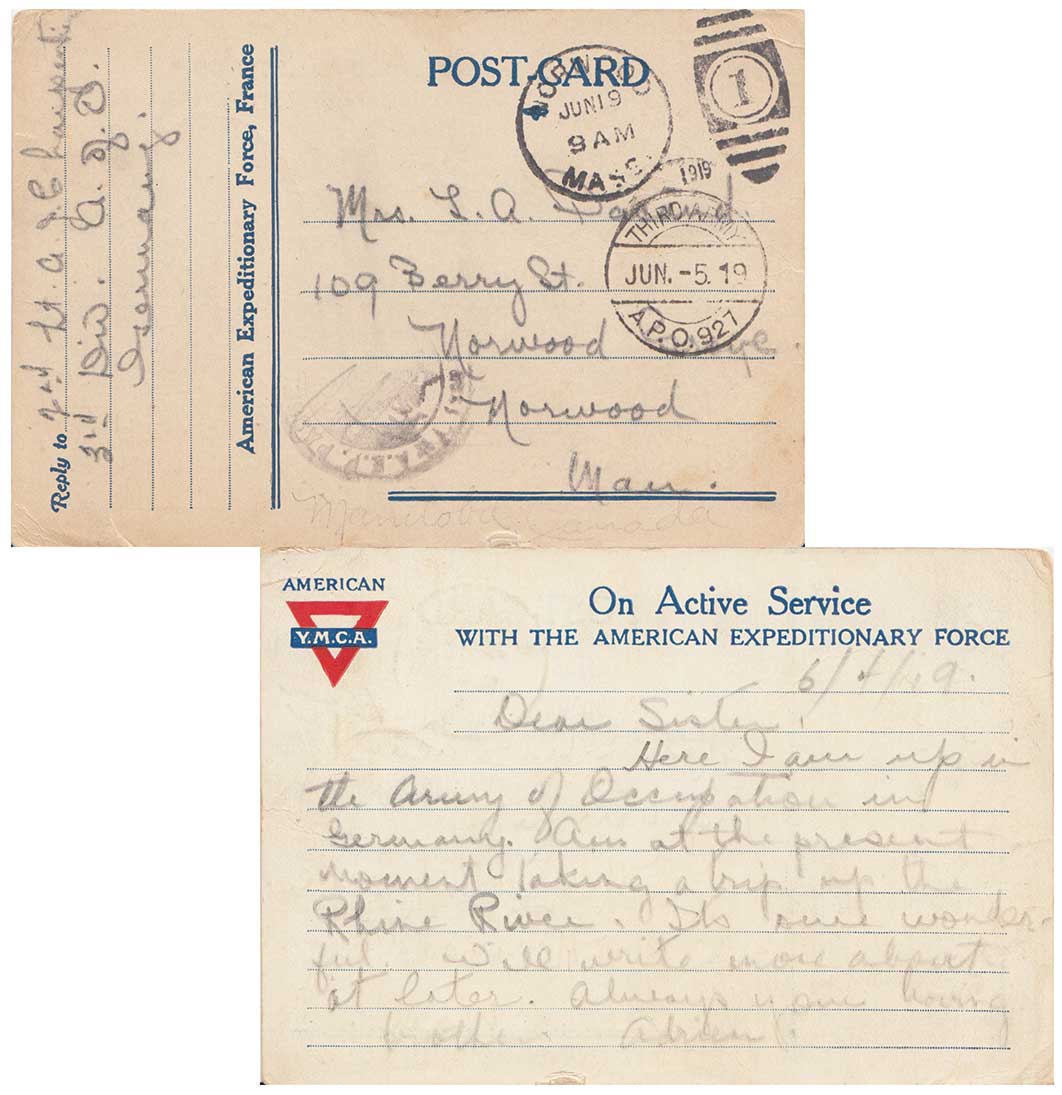 POST-CARD
NORWOOD
JUN 19
9 AM
MASS.
1
1919
THIRD ARMY
JUN. -5. 19
A.P.O. 927
Mrs. L. A.
109 Berry St.
Norwood
Norwood
Man.
Manitoba Canada
American Expeditionary Force, France
Reply to 2nd Lt. A. J.
3rd Div. A. of O.
Germany.
AMERICAN
Y.M.C.A.
On Active Service
WITH THE AMERICAN EXPEDITIONARY FORCE
6/4/19.
Dear Sister,
Here I am up in
the Army of Occupation in
Germany. Am at the present
moment taking a trip up the
Rhine River. Its sure wonder-
ful. Will write more about
it later. Always your loving
brother Adrien.